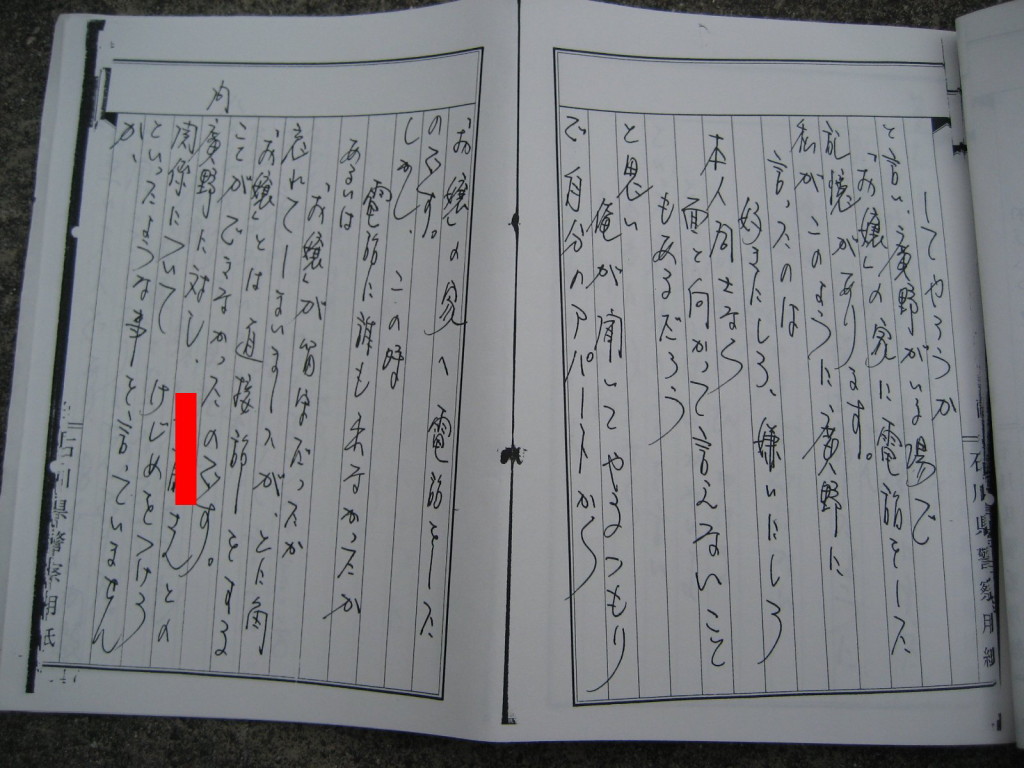 してやろうか
と言い、廣野がいる場で
「お嬢」の家に電話をした
記憶があります。
私がこのように、廣野に
言ったのは
好きにしろ、嫌いにしろ
本人同士なら
面と向かって言えないこと
もあるだろう
と思い
俺が聞いてやるつもり
で自分のアパートから
「お嬢」の家へ電話をした
のです。
しかし、この時
電話に誰も出なかったか
あるいは
「お嬢」が留守だったか
忘れてしまいましたが、とに角
「お嬢」とは直接話しをする
ことができなかったのです。
廣野に対し、さんとの
関係について けじめをつけろ
といったような事を言っていません
か、
内
石川県警察用紙
石川県警察用紙